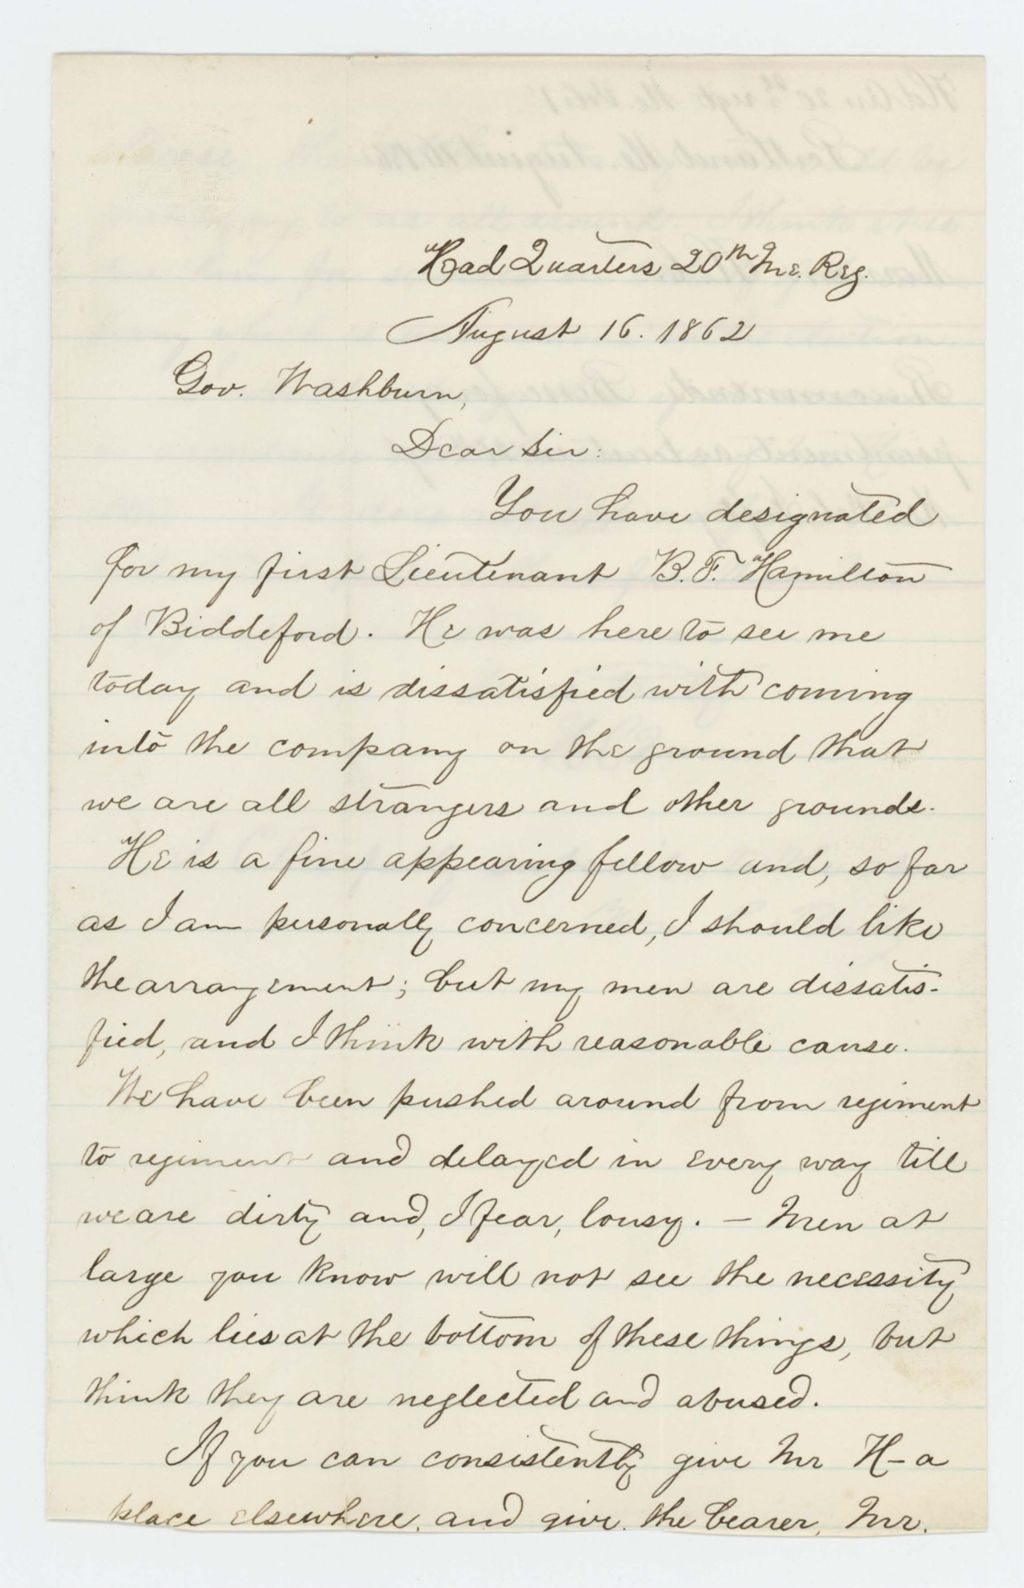 Head Quarters 20th Me. Reg.
August 16. 1862
Gov. Washburn,
Dear Sir:
You have designated
for my first Lieutenant B. F. Hamilton
of Biddeford. He was here to see me
today and is dissatisfied with coming
into the company on the ground that
we are all strangers and other grounds.
He is a fine appearing fellow and, so far
as I am personally concerned, I should like
the arrangement; but my men are dissatis-
fied, and I think with reasonable cause.
We have been pushed around from regiment
to regiment and delayed in every way till
we are dirty and, I fear, lousy. — Men at
large you know will not see the necessity
which lies at the bottom of these things, but
think they are neglected and abused.
If you can consistently give Mr H– a
place elsewhere, and give the bearer, Mr.